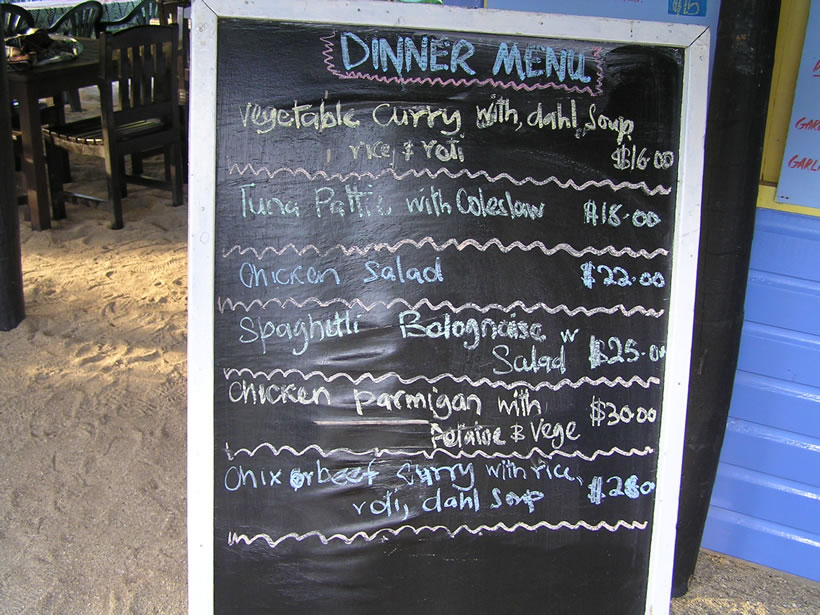 DINNER MENU
Vegetable Curry with, dahl soup
, rice, & roti $16.00
Tuna Pattie with Coleslaw $18.00
Chicken Salad $22.00
Spaghetti Bolognaise w $25.00
Salad
Chicken parmigan with $30.00
Potatoe & Vege
Chix or beef curry with rice,
roti, dahl soup